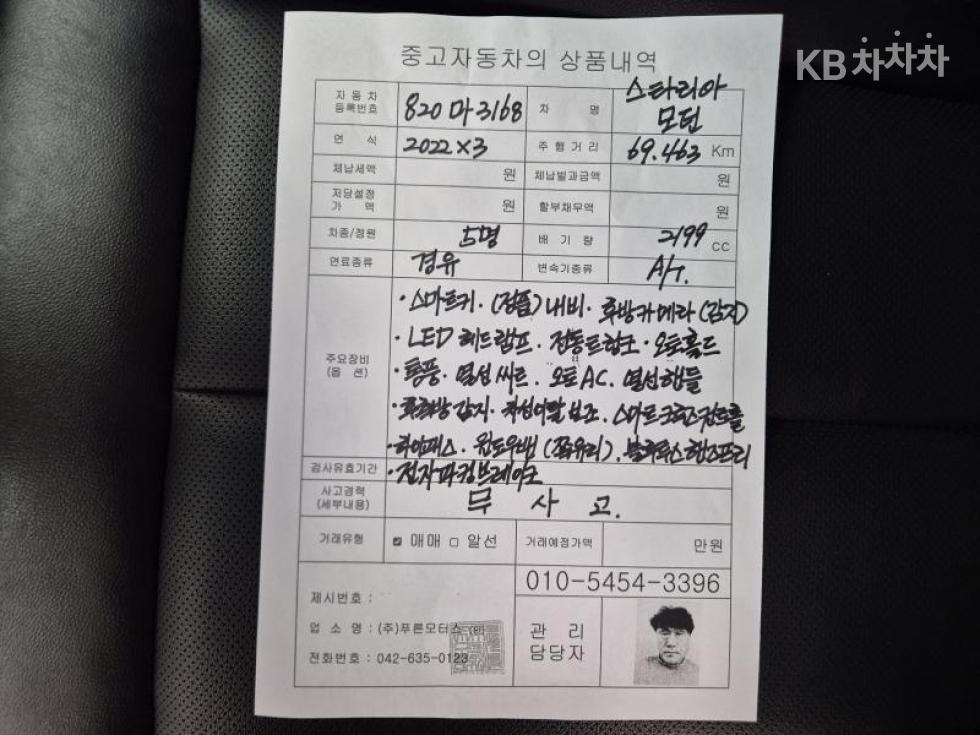 KB차차차
중고자동차의 상품내역
자동차 등록번호 820마3168 차 명 스타리아 모던
연 식 2022×3 주행거리 69.463 Km
체납세액 원 체납벌과금액 원
저당설정 가 액 원 할부채무액 원
차종/정원 5명 배 기 량 2199 CC
연료종류 경유 변속기종류 A/T.
주요장비 (옵 션)
· 스마트키 · (정품)내비 · 후방카메라(감지)
· LED 헤드램프 · 전동트렁크 · 오토홀드
· 통풍 · 열선씨트 · 오토AC. 열선핸들
· 전후방감지 · 차선이탈보조 · 스마트크루즈컨트롤
· 하이패스 · 윈도우 (쪽유리), 블루투스핸즈프리
· 전자파킹브레이크
검사유효기간
사고경력 (세부내용) 무 사 고.
거래유형 매매 알선 거래예정가액 만원
010-5454-3396
제시번호 :
업 소 명 : (주)푸른모터스
전화번호 : 042-635-0123
관 리 담당자